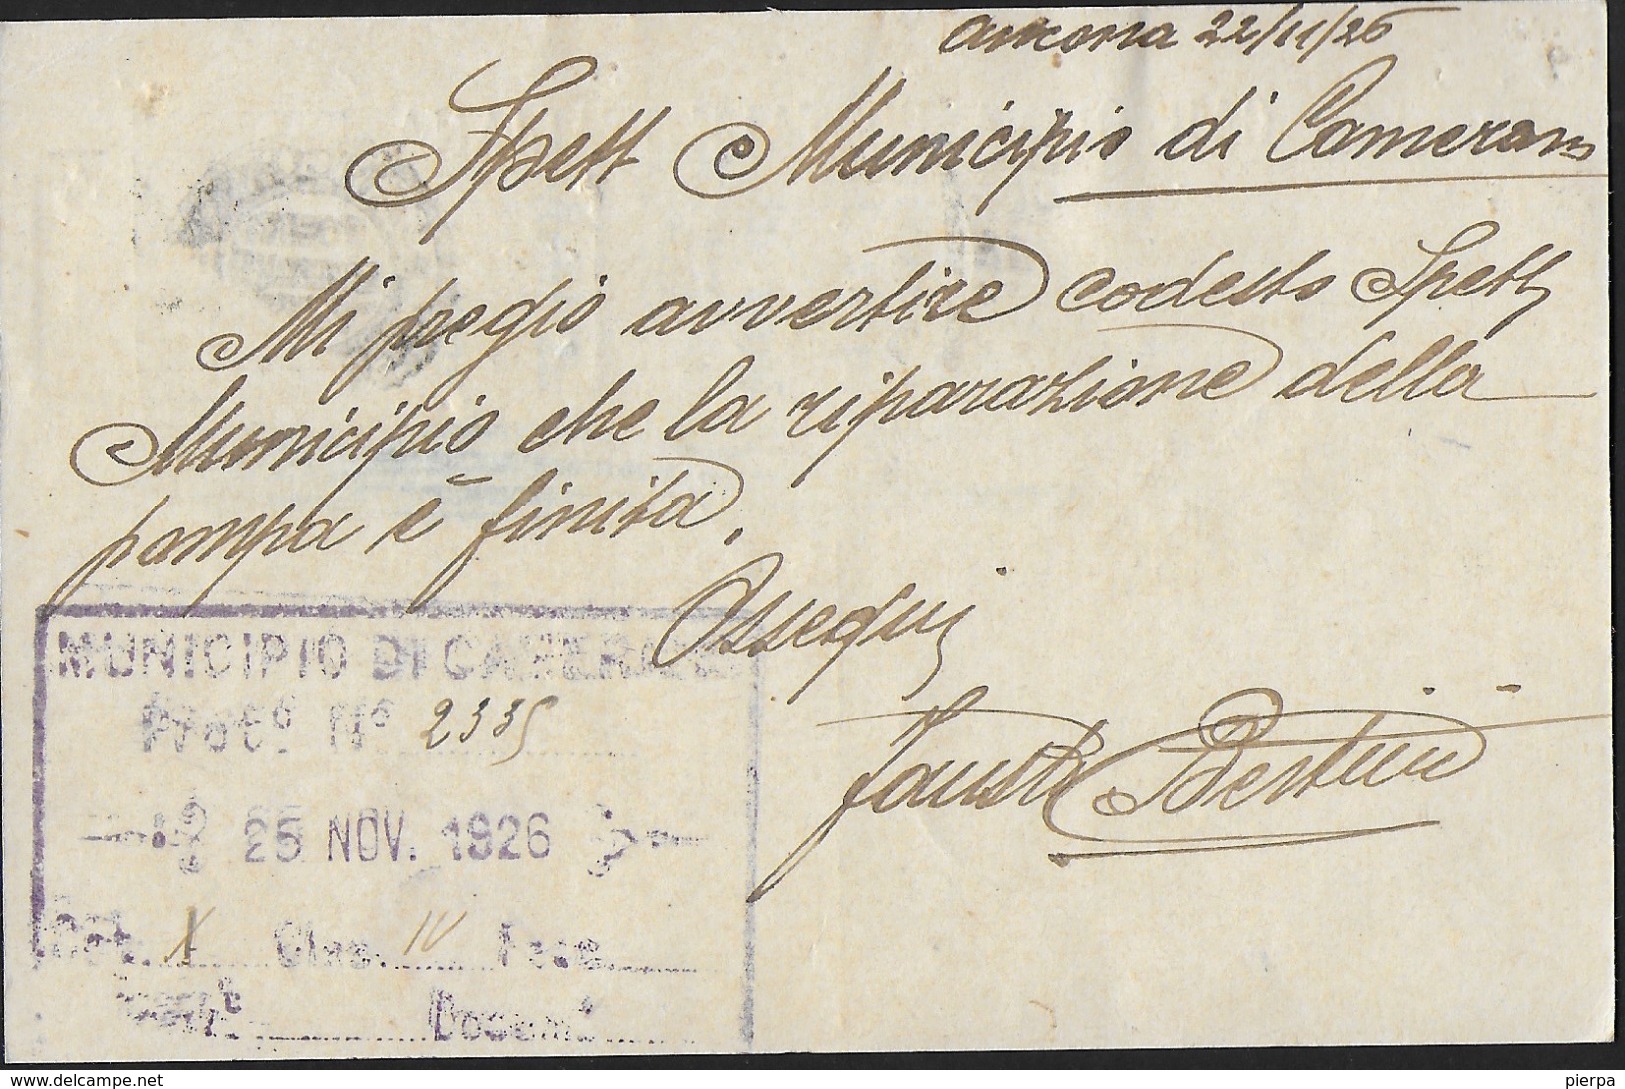 Ancona 22/11/26
Spett Municipio di Camerano
Mi pregio avvertire codesto Spett
Municipio che la riparazione della
pompa è finita.
Ossequi
Fausto Bertini
MUNICIPIO DI CAMERANO
Prot. N° 2335
25 NOV. 1926
Cat. X Clas. IV Fasc.
Docum.
www.delcampe.net
pierpa